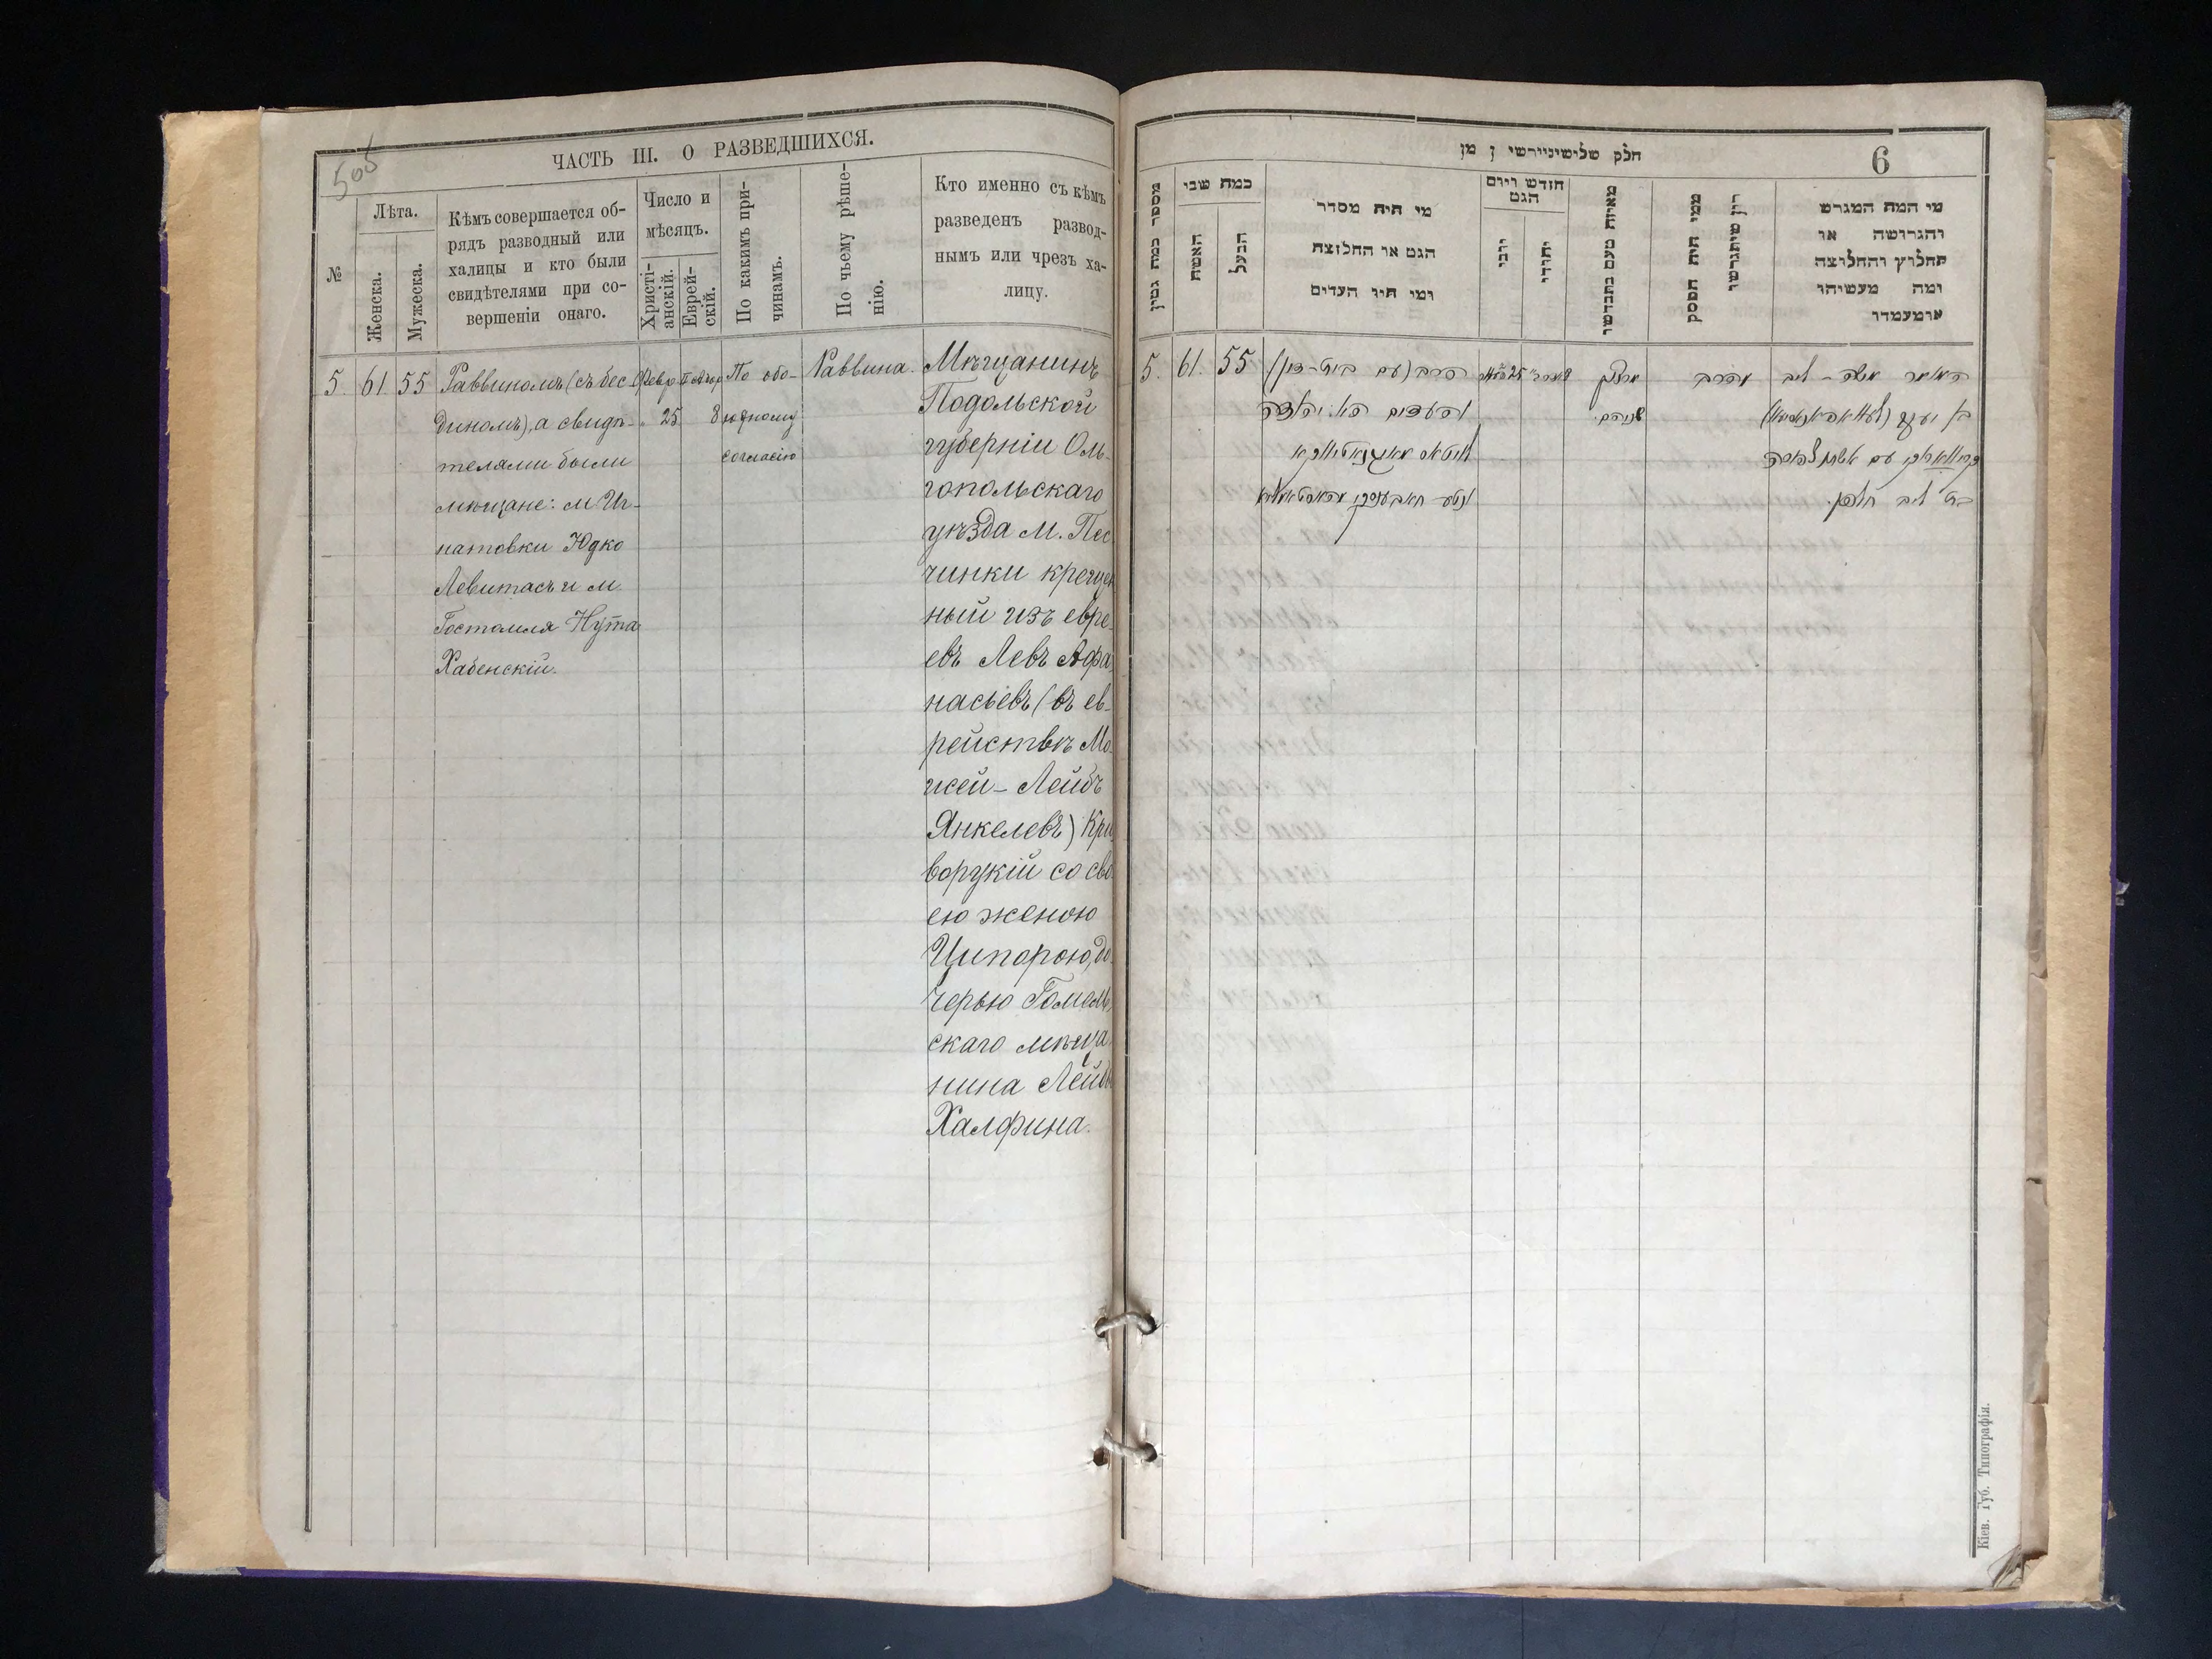 505
ЧАСТЬ III. О РАЗВЕДШИХСЯ.
№
Лѣта.
Женска.
Мужеска.
Кѣмъ совершается об-
рядъ разводный или
халицы и кто были
свидѣтелями при со-
вершеніи онаго.
Число и
мѣсяцъ.
Христі-
анскій.
Еврей-
скій.
По какимъ при-
чинамъ.
По чьему рѣше-
нію.
Кто именно съ кѣмъ
разведенъ развод-
нымъ или чрезъ ха-
лицу.
5. 61 55
Раввиномъ (съ бес-
диномъ), а свидѣ-
телями были
мѣщане: м. Иг-
натовки Юдко
Левитасъ и м.
Гостомля Нута
Хабенскій.
Февр.
25
8
По обо-
юдному
согласію
Раввина.
Мѣщанинъ
Подольской
губерніи Оль-
гопольскаго
уѣзда м. Пес
чинки крещен
ный изъ евре-
евъ Левъ Афа
насьевъ (въ ев-
рействѣ Мо-
шей-Лейбъ
Янкелевъ) Кри
ворукій со сво
ею женою
Ципорою, до
черью Гомель
скаго мѣща
нина Лейбы
Халфина.
6
חלק שלישי
מספר כמה גטין
כמה שני
האשה
הבעל
מי היה מסדר
הגט או החליצה
ומי היו העדים
חודש ויום
הגט
יוני
יהודי
מאיזה טעם נתגרשו
ממי היה הפסק
דין שיתגרשו
מי המה המגרש
והגרושה או
החלוץ והחלוצה
ומה מעשיהו
ומעמדו
5. 61. 55
הרב (עם בית-דין)
והעדים
25
מרצון
שניהם.
מהרב
משה-ליב
בן יעקב
עם אשתו צפורה
בת ליב חלפין.
Кіев. Губ. Типографія.